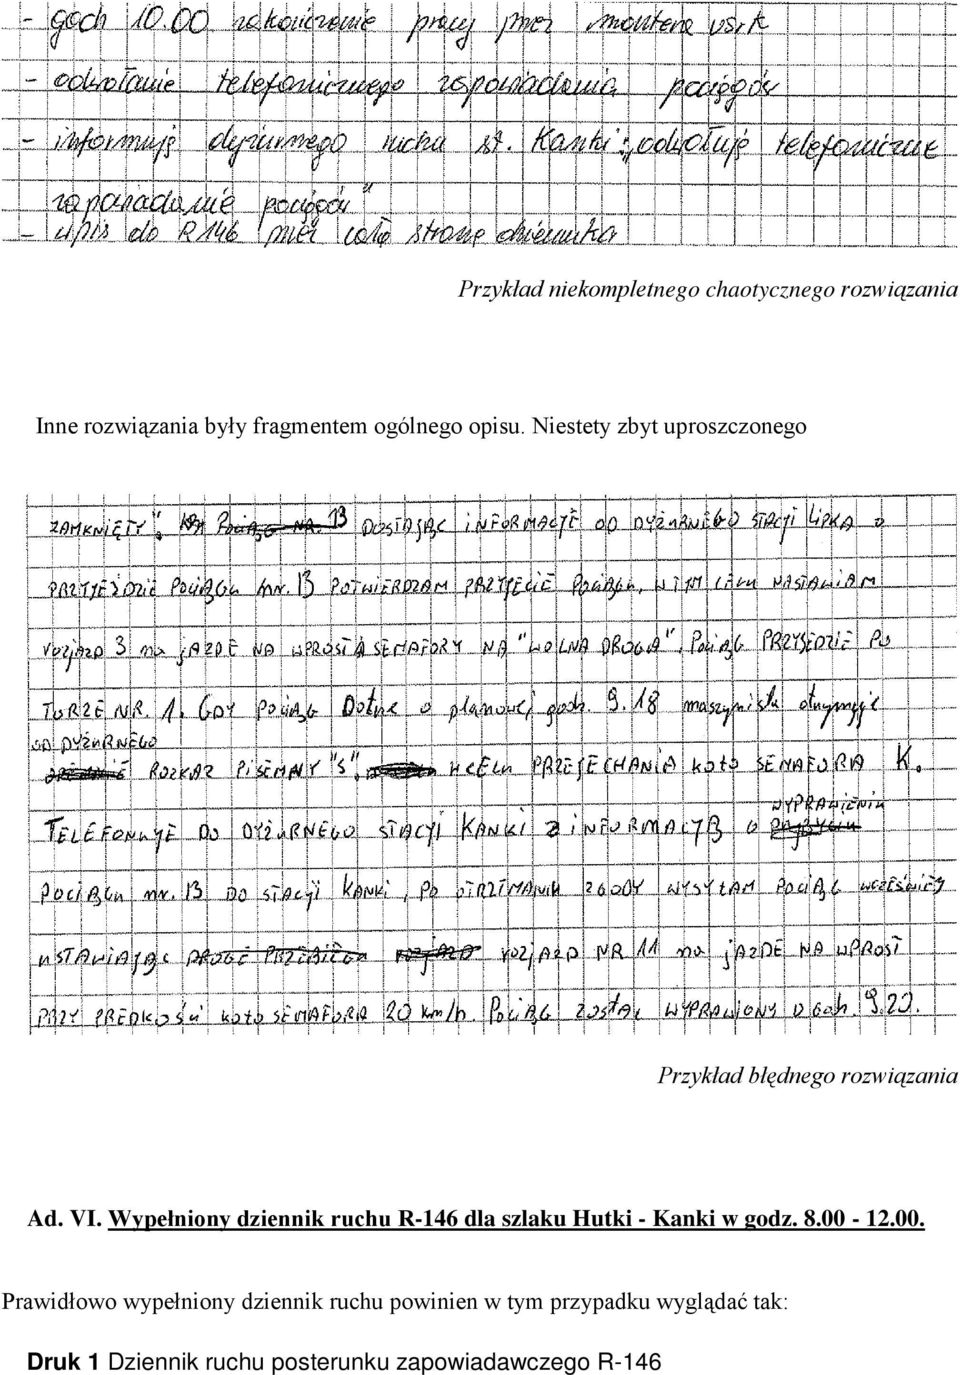 - godz 10.00 zakończenie pracy przez montera usrk
- odwołanie telefonicznego zapowiadania pociągów
- informuję dyżurnego ruchu st. Kanki: „odwołuję telefoniczne
zapowiadanie pociągów"
- wpis do R146 przez całą stronę dziennika
Przykład niekompletnego chaotycznego rozwiązania
Inne rozwiązania były fragmentem ogólnego opisu. Niestety zbyt uproszczonego
ZAMKNIĘTY". POCIĄG NR. 13 DOSTAJĄC INFORMACJĘ OD DYŻURNEGO STACJI LIPKA O
PRZYJEŹDZIE POCIĄGU nr. 13 POTWIERDZAM PRZYJĘCIE POCIĄGU, W TYM CELU NASTAWIAM
rozjazd 3 na JAZDĘ NA WPROST A SEMAFORY NA "WOLNA DROGA". POCIĄG PRZYJEDZIE PO
TORZE NR. 1. GDY POCIĄG Dotrze o planowej godz. 9.18 maszynista otrzymuje
OD DYŻURNEGO
ROZKAZ PISEMNY "S", W CELU PRZEJECHANIA koło SEMAFORA K.
WYPRAWIENIU
TELEFONUJE DO DYŻURNEGO STACJI KANKI Z INFORMACJĄ O
POCIĄGU nr. 13 DO STACJI KANKI, PO OTRZYMANIU ZGODY WYSYŁAM POCIĄG WCZEŚNIEJ
USTAWIAJĄC DROGĘ PRZEBIEGU rozjazd ROZJAZD NR 11 na JAZDĘ NA WPROST
PRZY PRĘDKOŚCI koło SEMAFORA 20 km/h. POCIĄG ZOSTAŁ WYPRAWIONY O Godz. 9.20.
Przykład błędnego rozwiązania
Ad. VI. Wypełniony dziennik ruchu R-146 dla szlaku Hutki - Kanki w godz. 8.00 - 12.00.
Prawidłowo wypełniony dziennik ruchu powinien w tym przypadku wyglądać tak:
Druk 1 Dziennik ruchu posterunku zapowiadawczego R-146